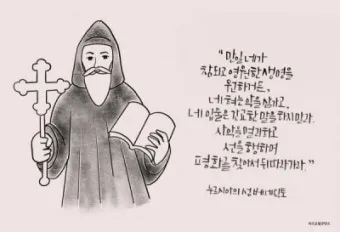 "만일 네가
참되고 영원한 생명을
원하거든,
네 혀는 악을 삼가고,
네 입술은 간교한 말을 하지 말라.
사악을 멸리하고
선을 행하며
평화를 찾아서 뒤따라가라."
누르시아의 성 베네딕도